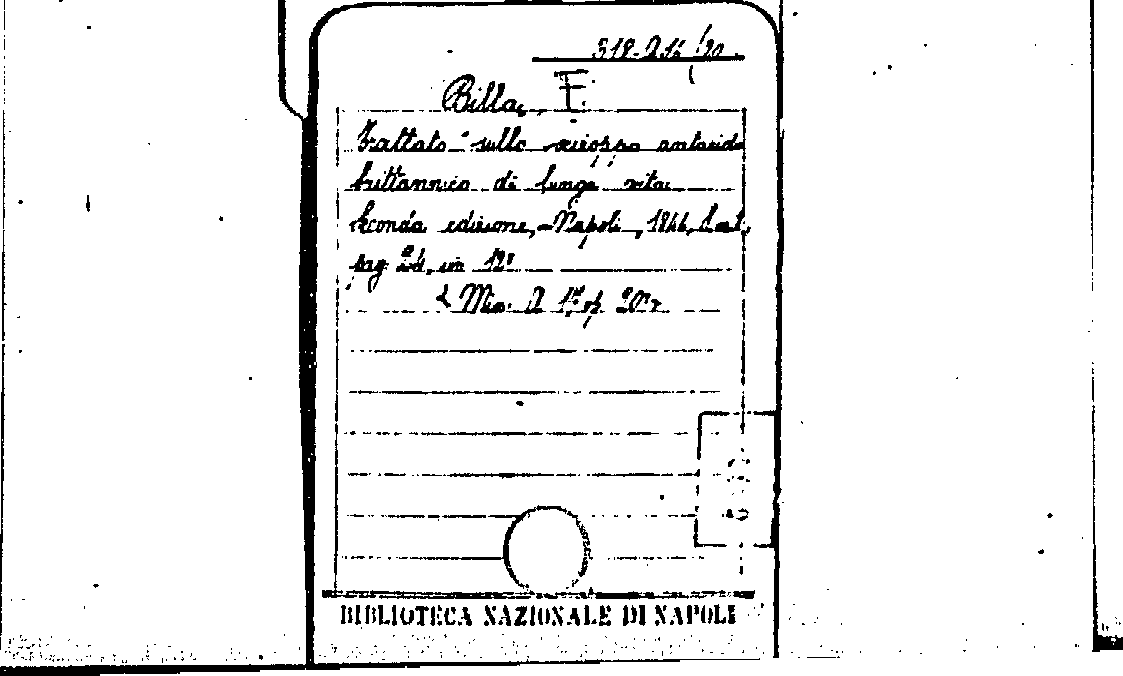 Billa, F.
Trattato sullo sciroppo antacido
brittannico di lunga vita.
Seconda edizione, - Napoli, 1844,
pag. 24, in 12°
Mis.
BIBLIOTECA NAZIONALE DI NAPOLI